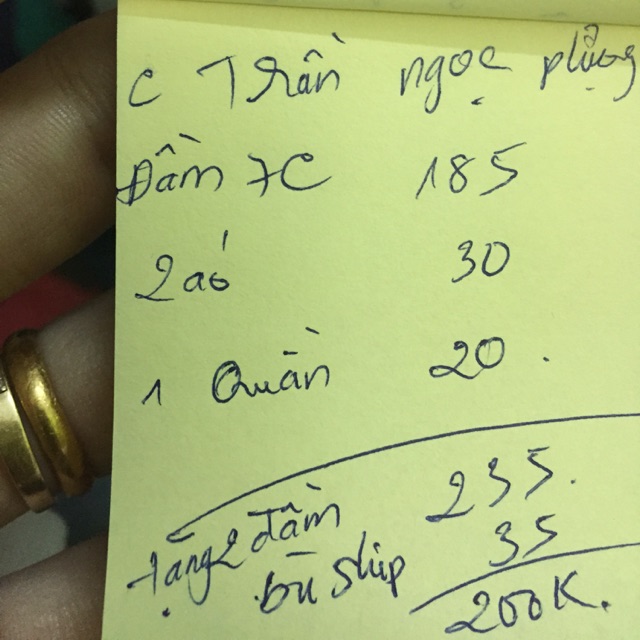 C Trần Ngọc Phượng
Đầm 7C 185
2 aó 30
1 Quần 20.
235.
tặng 2 đầm 35
bù ship
200K.